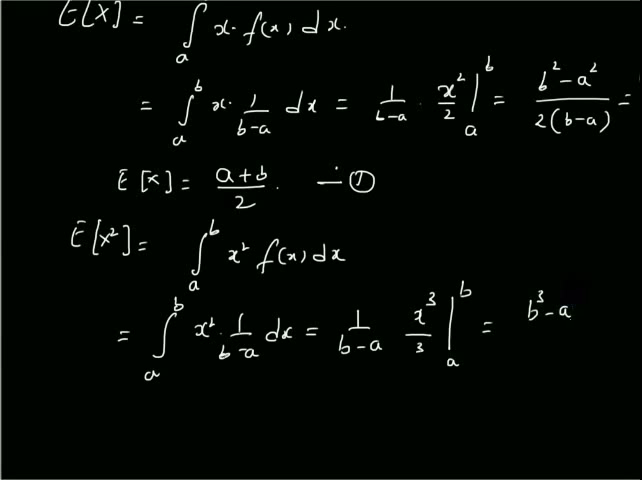 E[X] = ∫ₐ x · f(x) dx.
= ∫ₐᵇ x · 1/(b-a) dx = 1/(b-a) · x²/2 |ₐᵇ = (b² - a²)/(2(b-a)) =
E[X] = (a+b)/2 . — ①
E[X²] = ∫ₐᵇ x² f(x) dx
= ∫ₐᵇ x² · 1/(b-a) dx = 1/(b-a) x³/3 |ₐᵇ = b³ - a